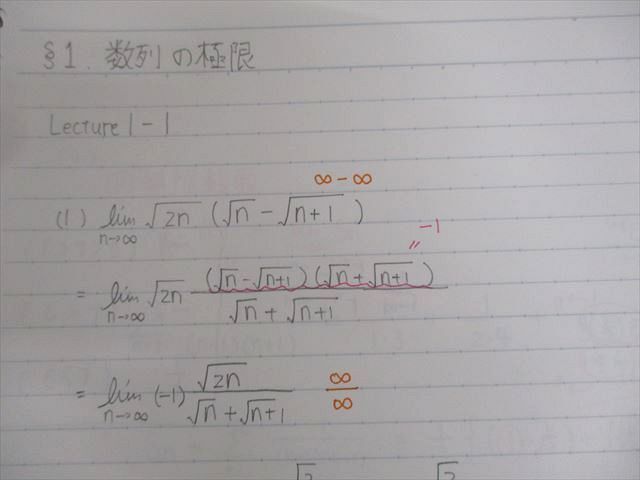 §1. 数列の極限
Lecture 1-1
∞-∞
(1) lim n→∞ √2n (√n - √n+1)
-1
= lim n→∞ √2n (√n-√n+1)(√n+√n+1) / √n+√n+1
= lim n→∞ (-1) √2n / √n+√n+1 ∞/∞
√2 √2